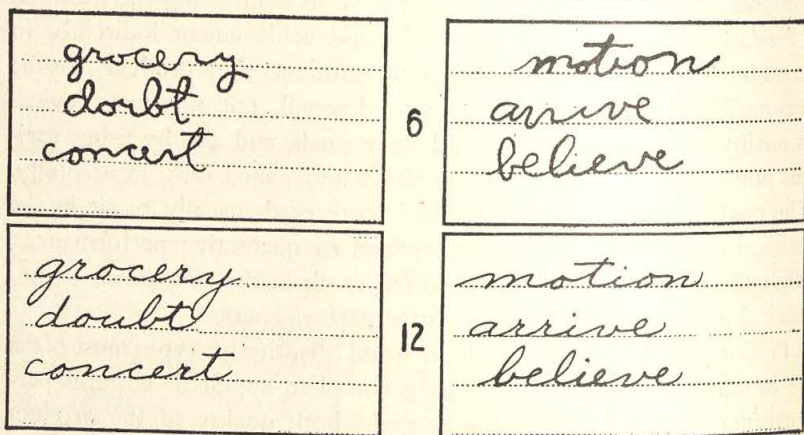 grocery
doubt
concert
6
motion
arrive
believe
grocery
doubt
concert
12
motion
arrive
believe